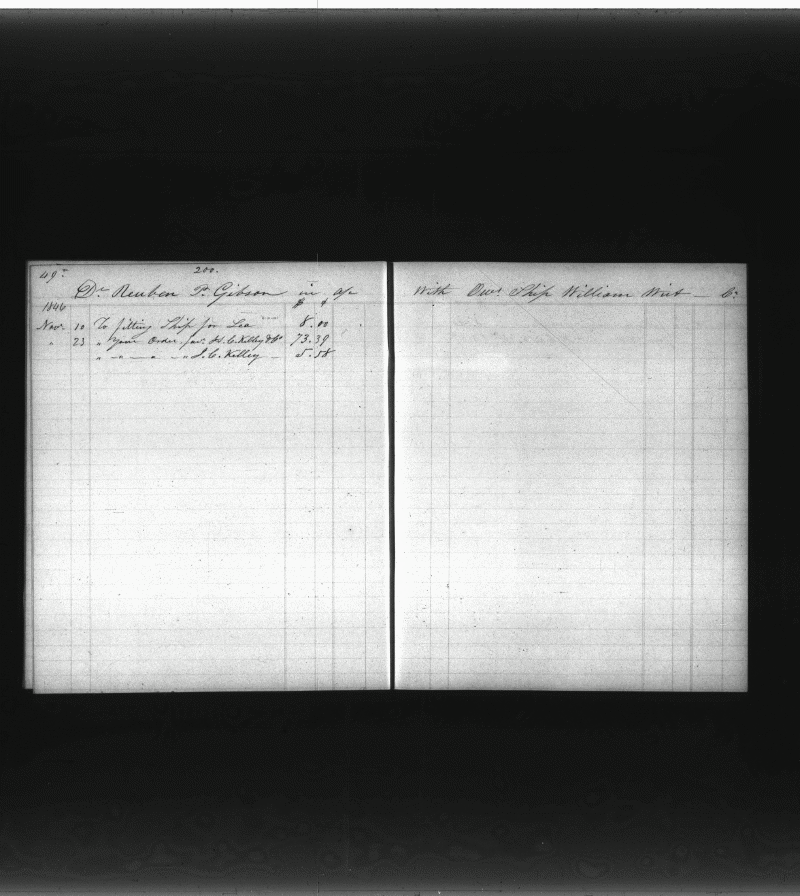 49
200.
Dr. Reuben P. Gibson in a/c
$ ¢
1846
Nov. 10 To fitting Ship for Sea 8.00
" 23 " Your Order fav. H. C. Killey & Co 73.39
" " " " J. C. Killey 5.58
With Ows Ship William Wirt — Cr